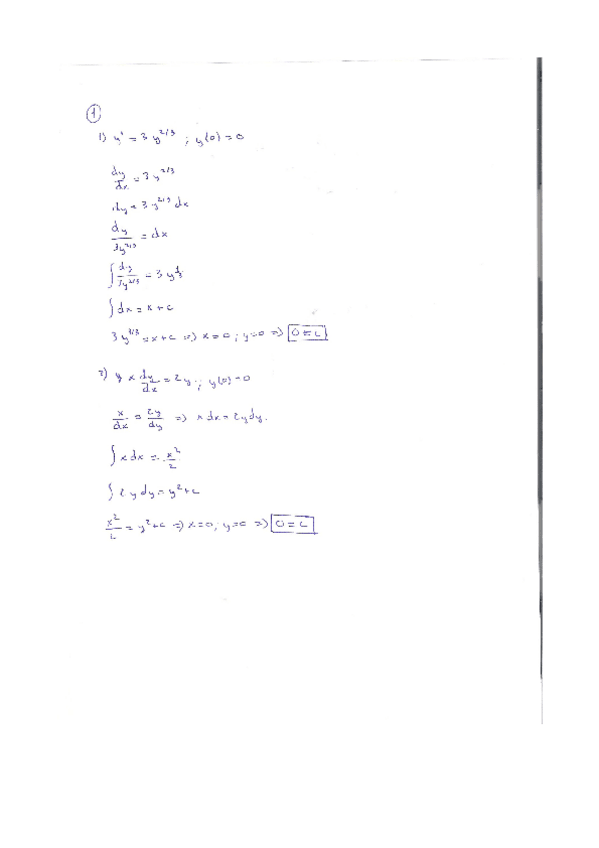 1
1) y' = 3 y^{2/3} ; y(0) = 0
dy/dx = 3 y^{2/3}
dy = 3 y^{2/3} dx
dy/3y^{2/3} = dx
∫ dy/3y^{2/3} = 3 y^{1/3}
∫ dx = x + c
3 y^{1/3} = x + c => x = 0 ; y = 0 => 0 = c
2) y x dy/dx = 2y ; y(0) = 0
x/dx = 2y/dy => x dx = 2y dy.
∫ x dx = x²/2
∫ 2 y dy = y² + c
x²/2 = y² + c => x = 0, y = 0 => 0 = c